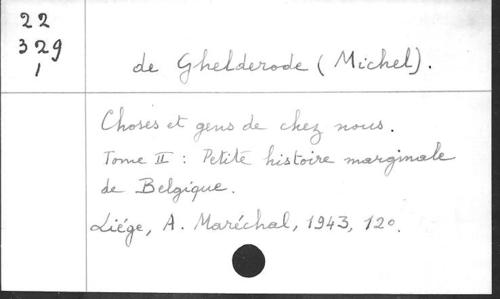 22
329
1
de Ghelderode (Michel).
Choses et gens de chez nous.
Tome II : Petite histoire marginale
de Belgique.
Liége, A. Maréchal, 1943, 12o.